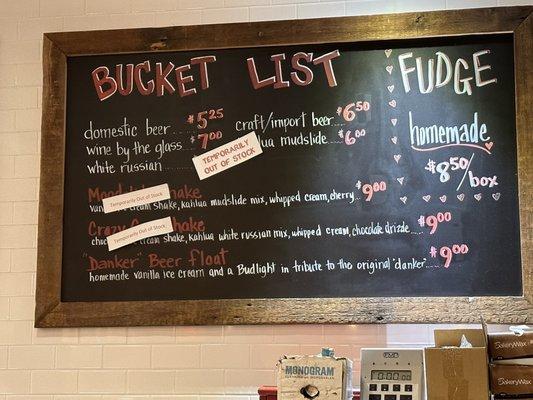 BUCKET LIST
FUDGE
domestic beer $5.25
wine by the glass $7.00
white russian
TEMPORARILY
OUT OF STOCK
craft/import beer $6.50
mudslide $6.00
homemade
$8.50/box
Shake
Temporarily Out of Stock
cream shake, kahlua mudslide mix, whipped cream, cherry $9.00
Shake
Temporarily Out of Stock
cream shake, kahlua white russian mix, whipped cream, chocolate drizzle $9.00
"Danker" Beer float
homemade vanilla ice cream and a Budlight in tribute to the original "danker" $9.00
MONOGRAM
BakeryWax
BakeryWax